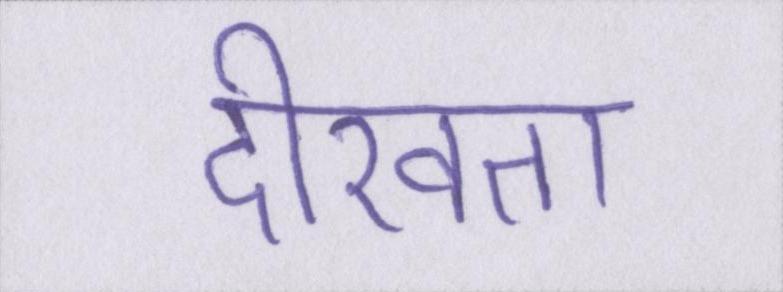 दीखता